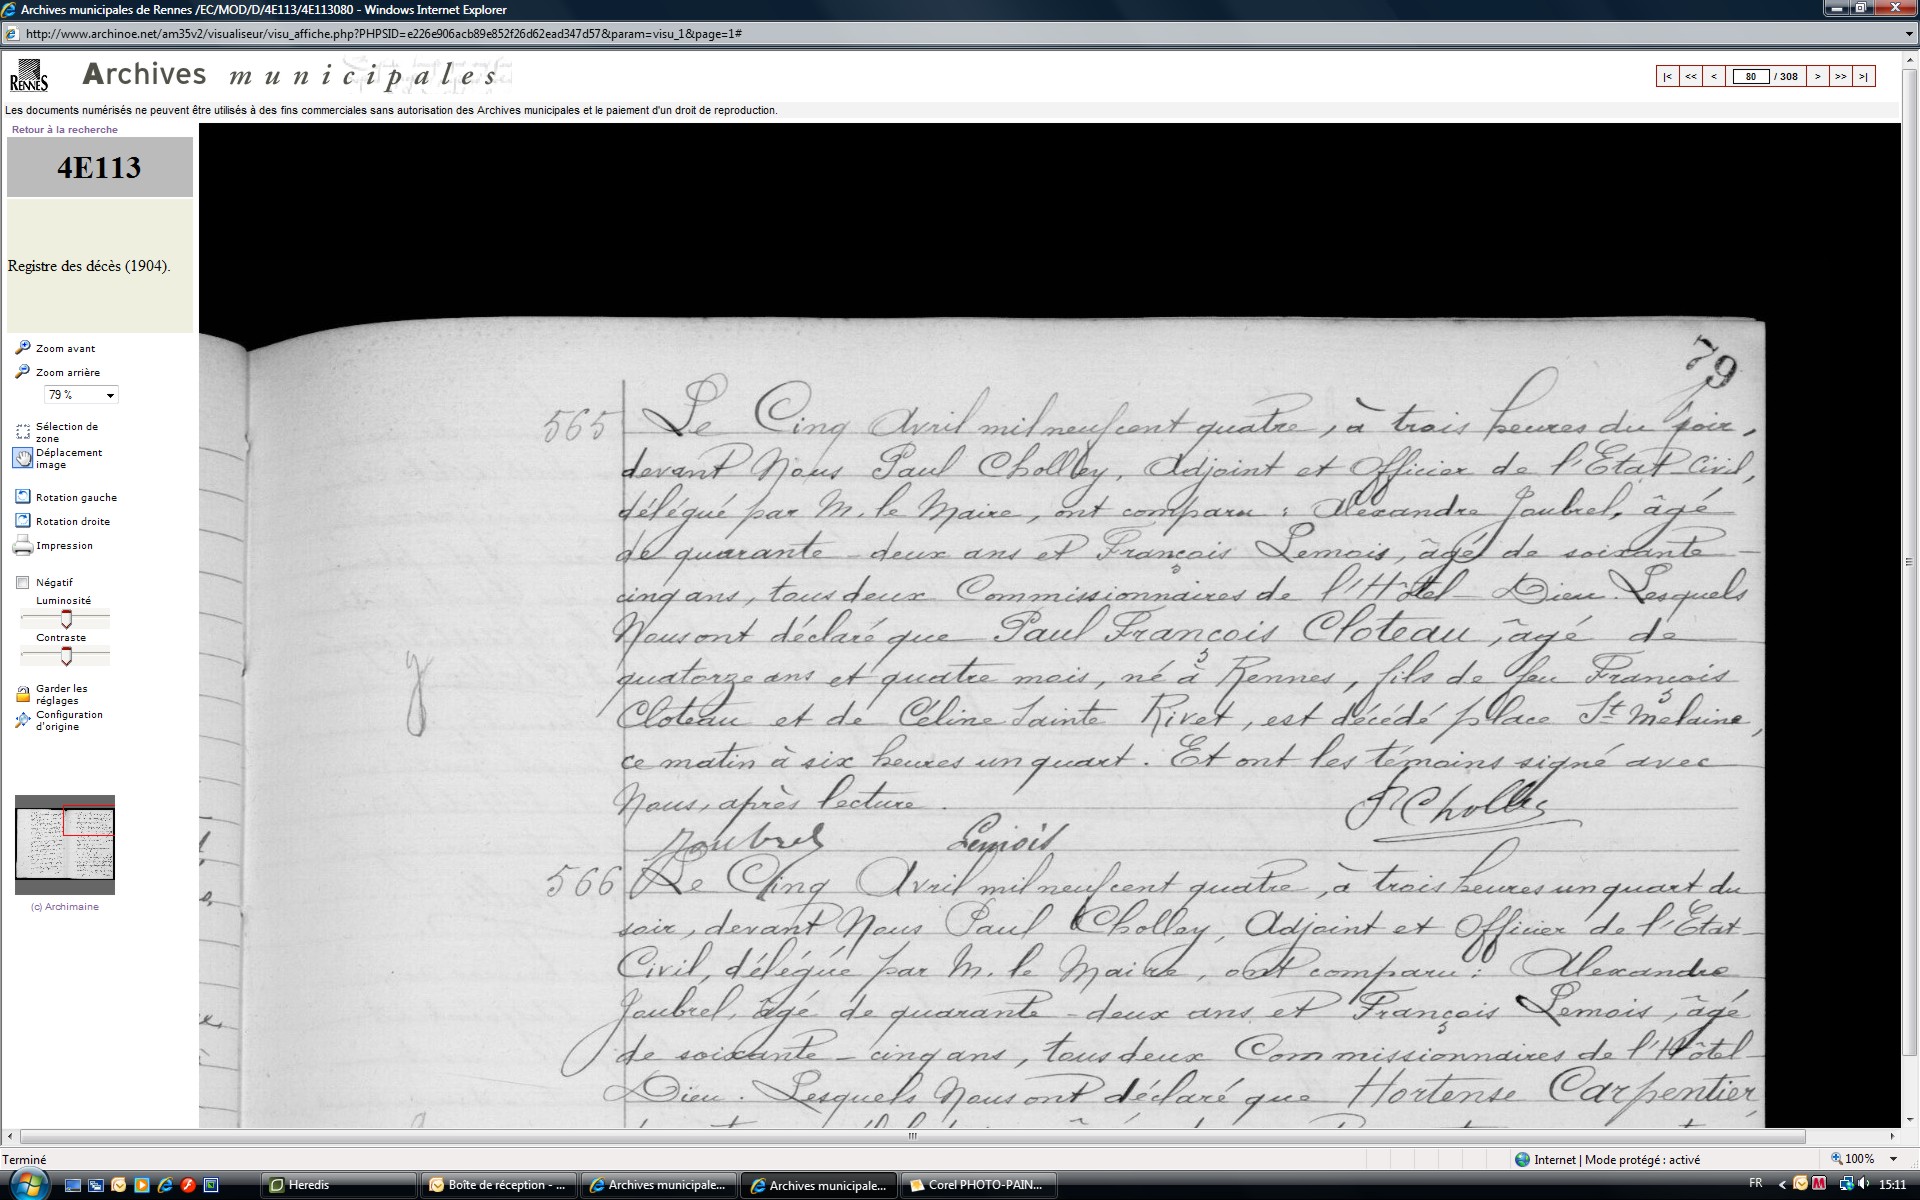 Archives municipales de Rennes /EC/MOD/D/4E113/4E113080 - Windows Internet Explorer
http://www.archinoe.net/am35v2/visualiseur/visu_affiche.php?PHPSID=e226e906acb89e852f26d62ead347d57&param=visu_1&page=1#
RENNES
Archives municipales
|< << < 80 / 308 > >> >|
Les documents numérisés ne peuvent être utilisés à des fins commerciales sans autorisation des Archives municipales et le paiement d'un droit de reproduction.
Retour à la recherche
4E113
Registre des décès (1904).
Zoom avant
Zoom arrière
79 %
Sélection de
zone
Déplacement
image
Rotation gauche
Rotation droite
Impression
Négatif
Luminosité
Contraste
Garder les
réglages
Configuration
d'origine
(c) Archimaine
79
565 Le Cinq Avril mil neuf cent quatre, à trois heures du soir,
devant Nous Paul Cholley, Adjoint et Officier de l'Etat-Civil,
délégué par M. le Maire, ont comparu : Alexandre Joubrel, âgé
de quarante-deux ans et François Lemois, âgé de soixante-
cinq ans, tous deux Commissionnaires de l'Hôtel-Dieu. Lesquels
Nous ont déclaré que Paul François Cloteau, âgé de
quatorze ans et quatre mois, né à Rennes, fils de feu François
Cloteau et de Céline Sainte Rivet, est décédé place St Melaine,
ce matin à six heures un quart. Et ont les témoins signé avec
Nous, après lecture.
PCholley
Joubrel Lemois
566 Le Cinq Avril mil neuf cent quatre, à trois heures un quart du
soir, devant Nous Paul Cholley, Adjoint et Officier de l'Etat-
Civil, délégué par M. le Maire, ont comparu : Alexandre
Joubrel, âgé de quarante-deux ans et François Lemois, âgé
de soixante-cinq ans, tous deux Commissionnaires de l'Hôtel-
Dieu. Lesquels Nous ont déclaré que Hortense Carpentier,
Terminé
Internet | Mode protégé : activé
100%
Heredis
Boîte de réception - ...
Archives municipale...
Archives municipale...
Corel PHOTO-PAIN...
FR
15:11